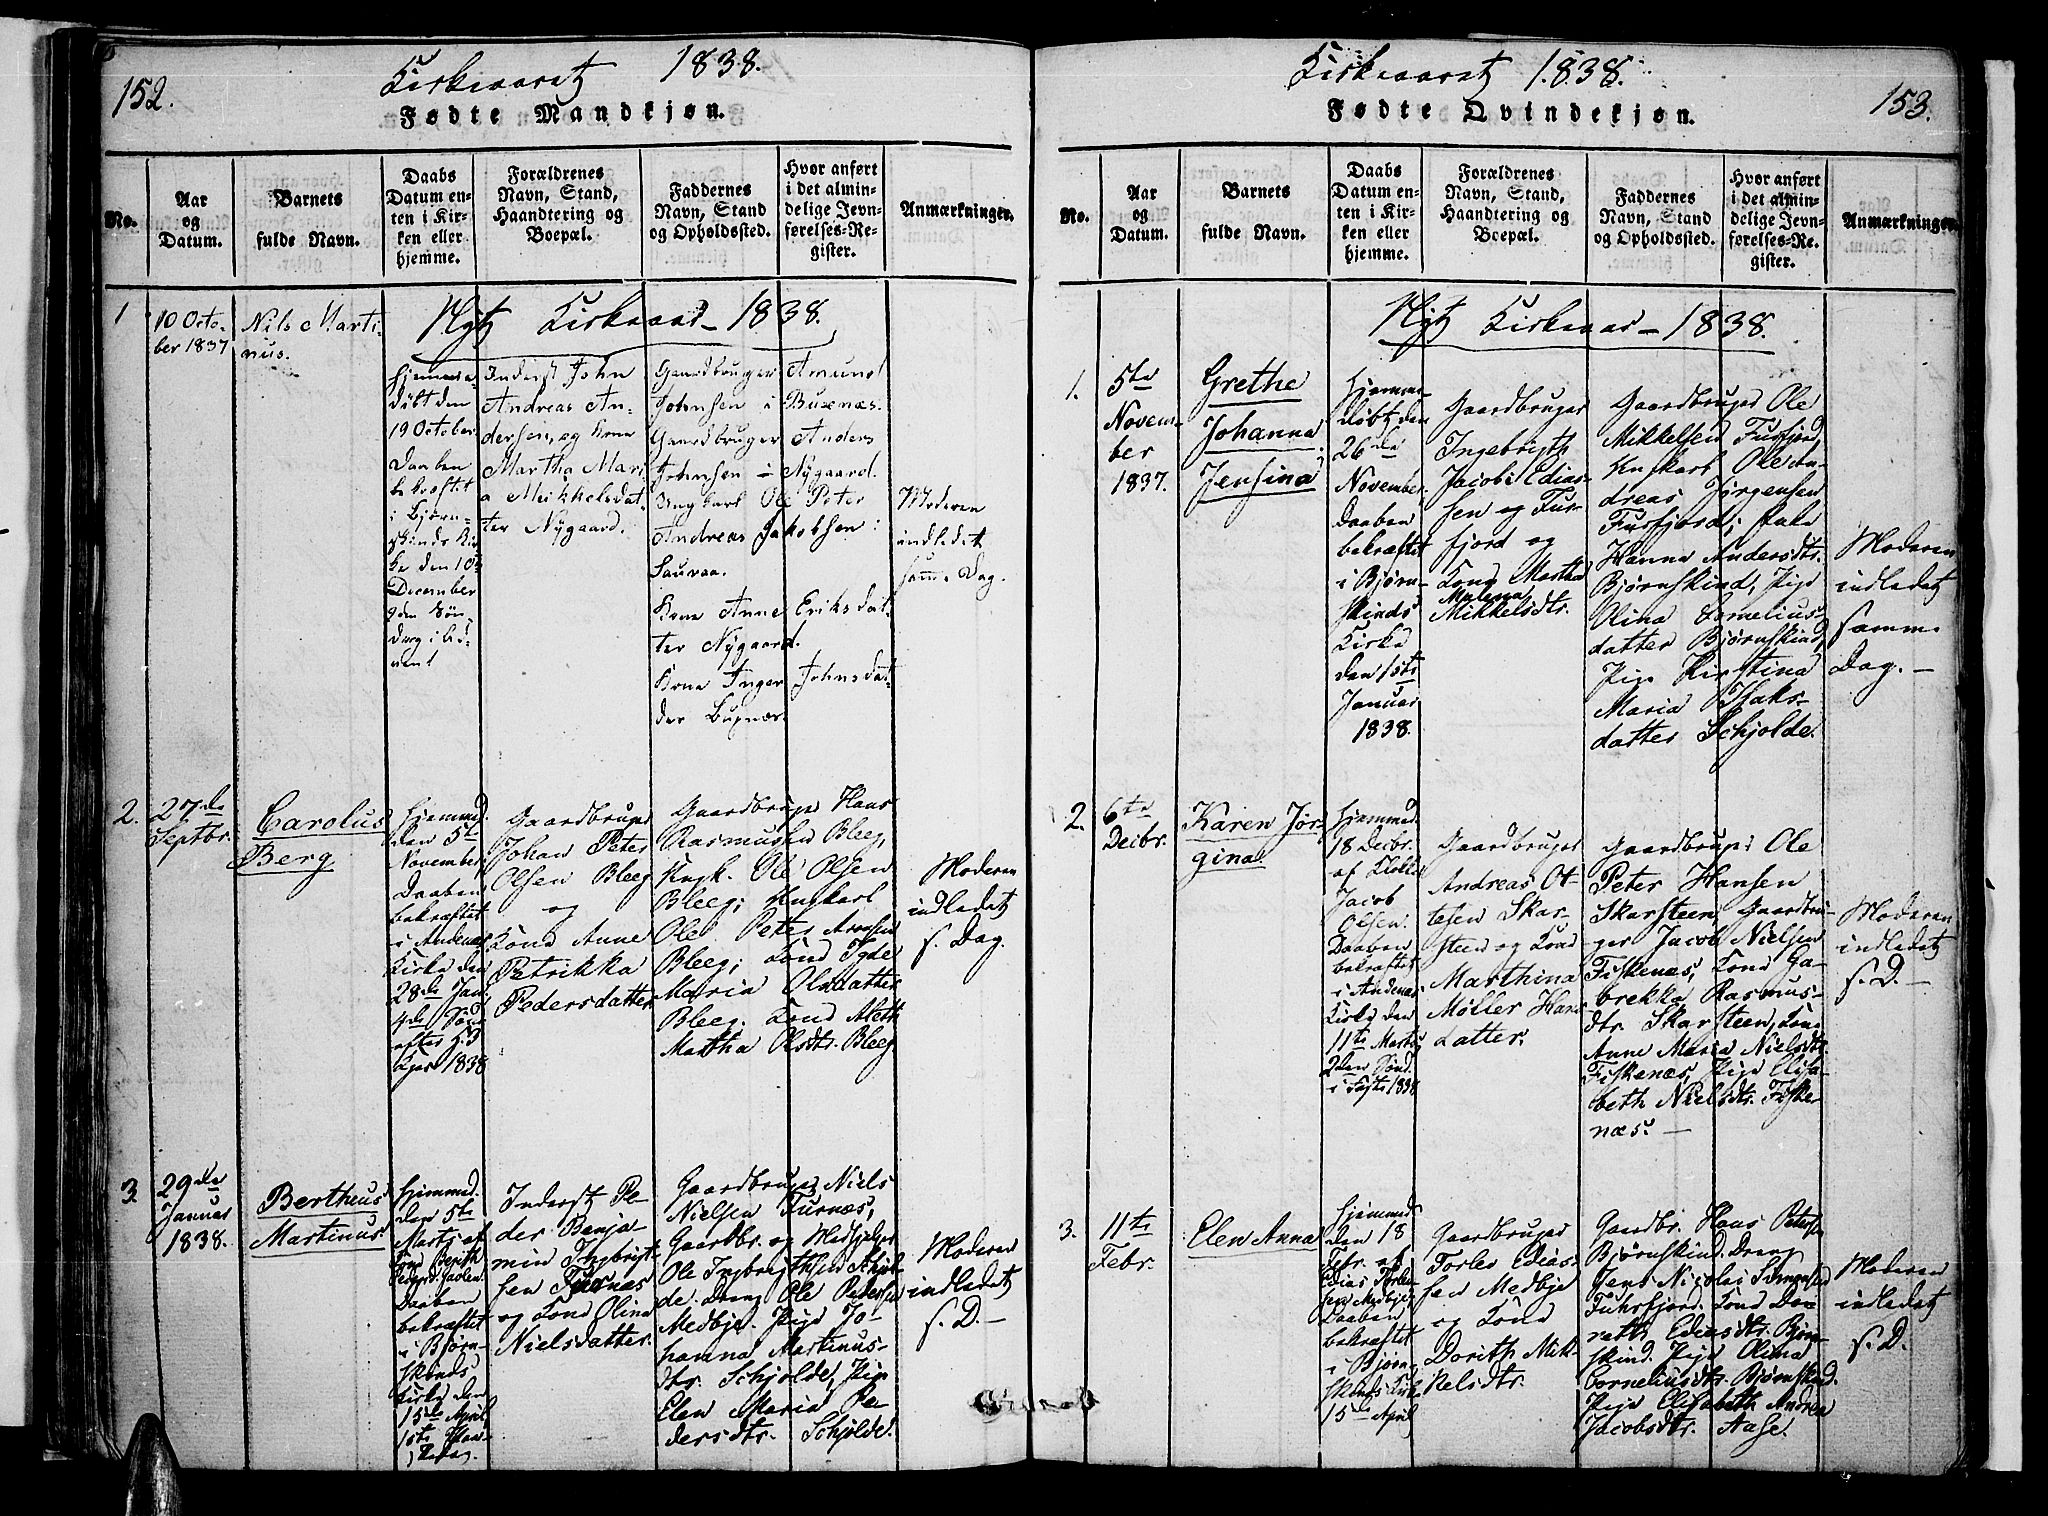 152.
Kirkeaaret 1838.
Fødte Mandkjøn.
No.
Aar
og
Datum.
Barnets
fulde Navn.
Daabs
Datum en-
ten i Kir-
ken eller
hjemme.
Forældrenes
Navn, Stand,
Haandtering og
Boepæl.
Faddernes
Navn, Stand
og Opholdssted.
Hvor anført
i det almin-
delige Jevn-
førelses-Re-
gister.
Anmærkninger.
Nyt Kirkeaar 1838.
1
10 Octo-
ber 1837
Nils Marti-
nus.
hjemme-
døbt den
19 October
Daaben
bekræftet
i Bjørn-
skinds Kir-
ke den 10
December
Inderst John
Andreas An-
dersen, og Kone
Martha Mari-
a Mikkelsdat-
ter Nygaard.
Gaardbruger Amund
Johnsen i Buxnæs.
Gaardbruger Anders
Johnsen i Nygaard.
Ungkarl Ole Peter
Andreas Jakobsen
Kone Anne Eriksdat-
ter Nygaard.
Kone Inger Johnsdat-
Moderen
indledet
samme Dag.
2.
27de
Septbr.
Carolus
Berg
hjemmed.
den 5te
November,
Daaben
bekræftet
i Andenæs
Kirke den
28de Jan.
1838
Gaardbruger
Johan Peter
Olsen Bleeg
og
Kone Anne
Petrikka
Pedersdatter
Gaardbruger Hans
Rasmussen Bleeg,
Ungk. Ole Olsen
Bleeg; Ungkarl
Ole Peter
Bleeg; Kone
Maria Olsdatter
Bleeg; Kone
Martha Olsdtr. Bleeg
Moderen
indledet
s. Dag.
3.
29de
Januar
1838.
Bertheus
Martinus
Hjemmed.
den 5te
Marts af
Daaben
bekræftet
i Bjørn-
skinds
Kirke den
15de April
Inderst Pe-
der Benja-
min Ingbrigt-
sen Furnæs
og Kone Olina
Nielsdatter.
Gaardbruger Niels
Nielsen Furnæs,
Gaardbr. og Medhjelper
Ole Ingbrigthsen Schjol-
de. Dreng Ole Pedersen
Medbye. Pige Jo-
hanna Martinus-
dtr. Schjolde, Pige
Elen Maria Pe-
dersdtr. Schjolde.
Moderen
indledet
s. D.
Kirkeaaret 1838.
153.
Fødte Qvindekjøn.
No.
Aar
og
Datum.
Barnets
fulde Navn.
Daabs
Datum en-
ten i Kir-
ken eller
hjemme.
Forældrenes
Navn, Stand,
Haandtering og
Boepæl.
Faddernes
Navn, Stand
og Opholdssted.
Hvor anført
i det almin-
delige Jevn-
førelses-Re-
gister.
Anmærkninger.
Nyt Kirkeaar 1838.
1.
5te
Novem-
ber
1837.
Grethe
Johanna
Jensina
Hjemme-
døbt den
26de
November.
Daaben
bekræftet
i Bjørn-
skinds
Kirke
den 1ste
Januar
1838.
Gaardbruger
Ingebrigth
Jacob Edias-
sen og Fur-
fjord og
Kone Martha
Malena
Mikkelsdtr.
Gaardbruger Ole
Mikkelsen Fursfjord,
Ungkarl Ole An-
dreas Jørgensen
Fursfjord;
Hanna Andersdtr.
Bjørnskind, Pige
Olina Cornelius-
datter Bjørnskind,
Pige Kirstina
Maria Isaks-
datter Schjolde.
Moderen
indledet
samme
Dag.
2.
6te
Decbr.
Karen Jør-
gina
Hjemmed.
18 Decbr.
af Klokker
Jacob
Olsen.
Daaben
bekræftet
i Andenæs
Kirke den
11te Marts
2den Sønd.
i Faste 1838
Gaardbruger
Andreas Ot-
tesen Skar-
steen og Kone
Marthina
Møller Hans-
datter.
Gaardbruger Ole
Peter Hansen
Skarsteen, Gaardbru-
ger Jacob Nielsen
Fiskenæs, Kone Ga-
brekka Rasmus-
dtr. Skarsteen, Kone
Anne Maria Nielsdtr.
Fiskenæs, Pige Elisa-
beth Nielsdtr. Fiske-
næs.
Moderen
indledet
s. D.
3.
11te
Febr.
Elen Anna
Hjemmed.
den 18
Febr. af
Edias Torle-
sen Medbye,
Daaben
bekræftet
i Bjørn-
skinds Kirke
15de April
Gaardbruger
Torler Edias-
sen Medbye
og Kone
Dorith Mik-
kelsdtr.
Gaardbr. Hans Petersen
Bjørnskind. Dreng
Jens Nicolai Simonsen
Fuhrsfjord. Kone Do-
reth Ediasdtr. Bjørn-
skind. Pige Olina
Corneliusdtr. Bjørnskind.
Pige Elisabeth Andrea
Jacobsdtr. Aase.
Moderen
indledet
s. D.